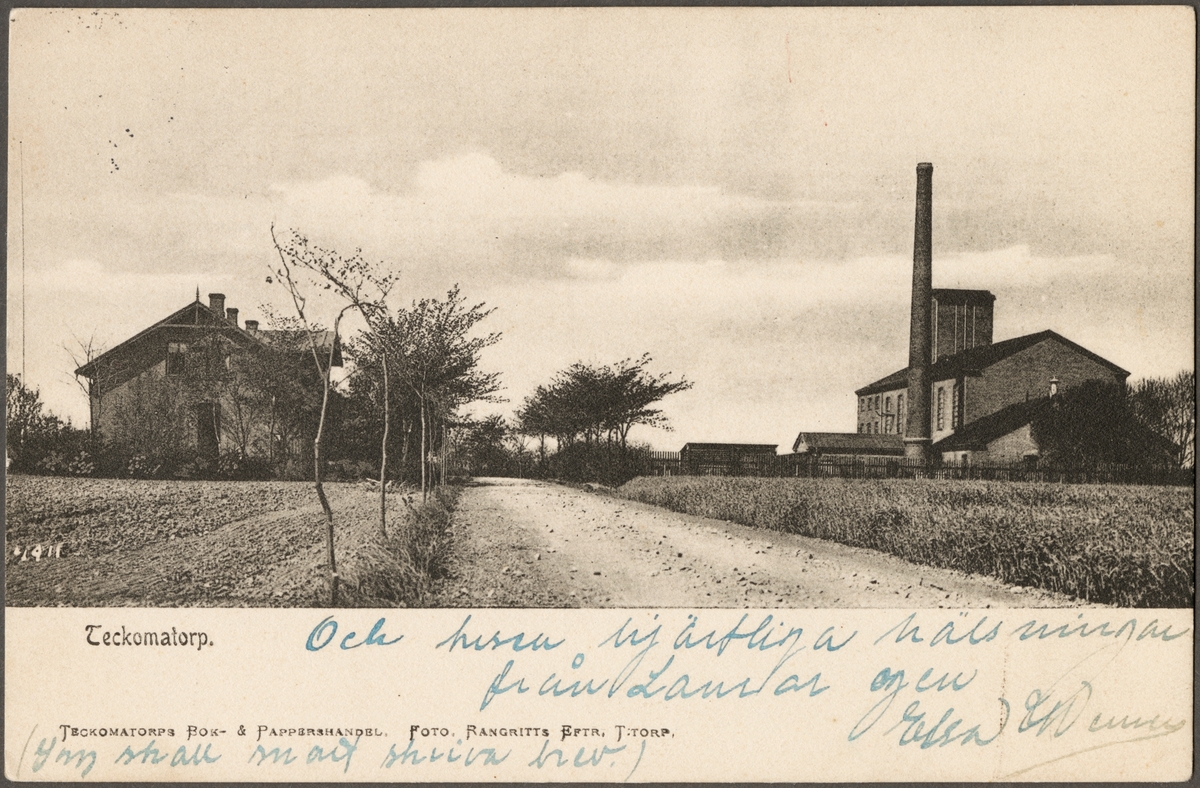 1911
Teckomatorp.
Och hjärtliga hälsningar
från Laura och en
Elsa
TECKOMATORPS BOK- & PAPPERSHANDEL. FOTO. RANGRITTS EFTR, T:TORP.
(Jag skall snart skriva brev.)